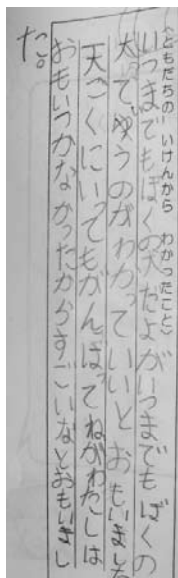 〈ともだちの いけんから わかったこと〉
いつまでもぼくの犬だよがいつまでもぼくの
犬てゆうのがわかっていいとおもいました
天ごくにいってもがんばってねがわたしは
おもいつかなかったからすごいなとおもいまし
た。